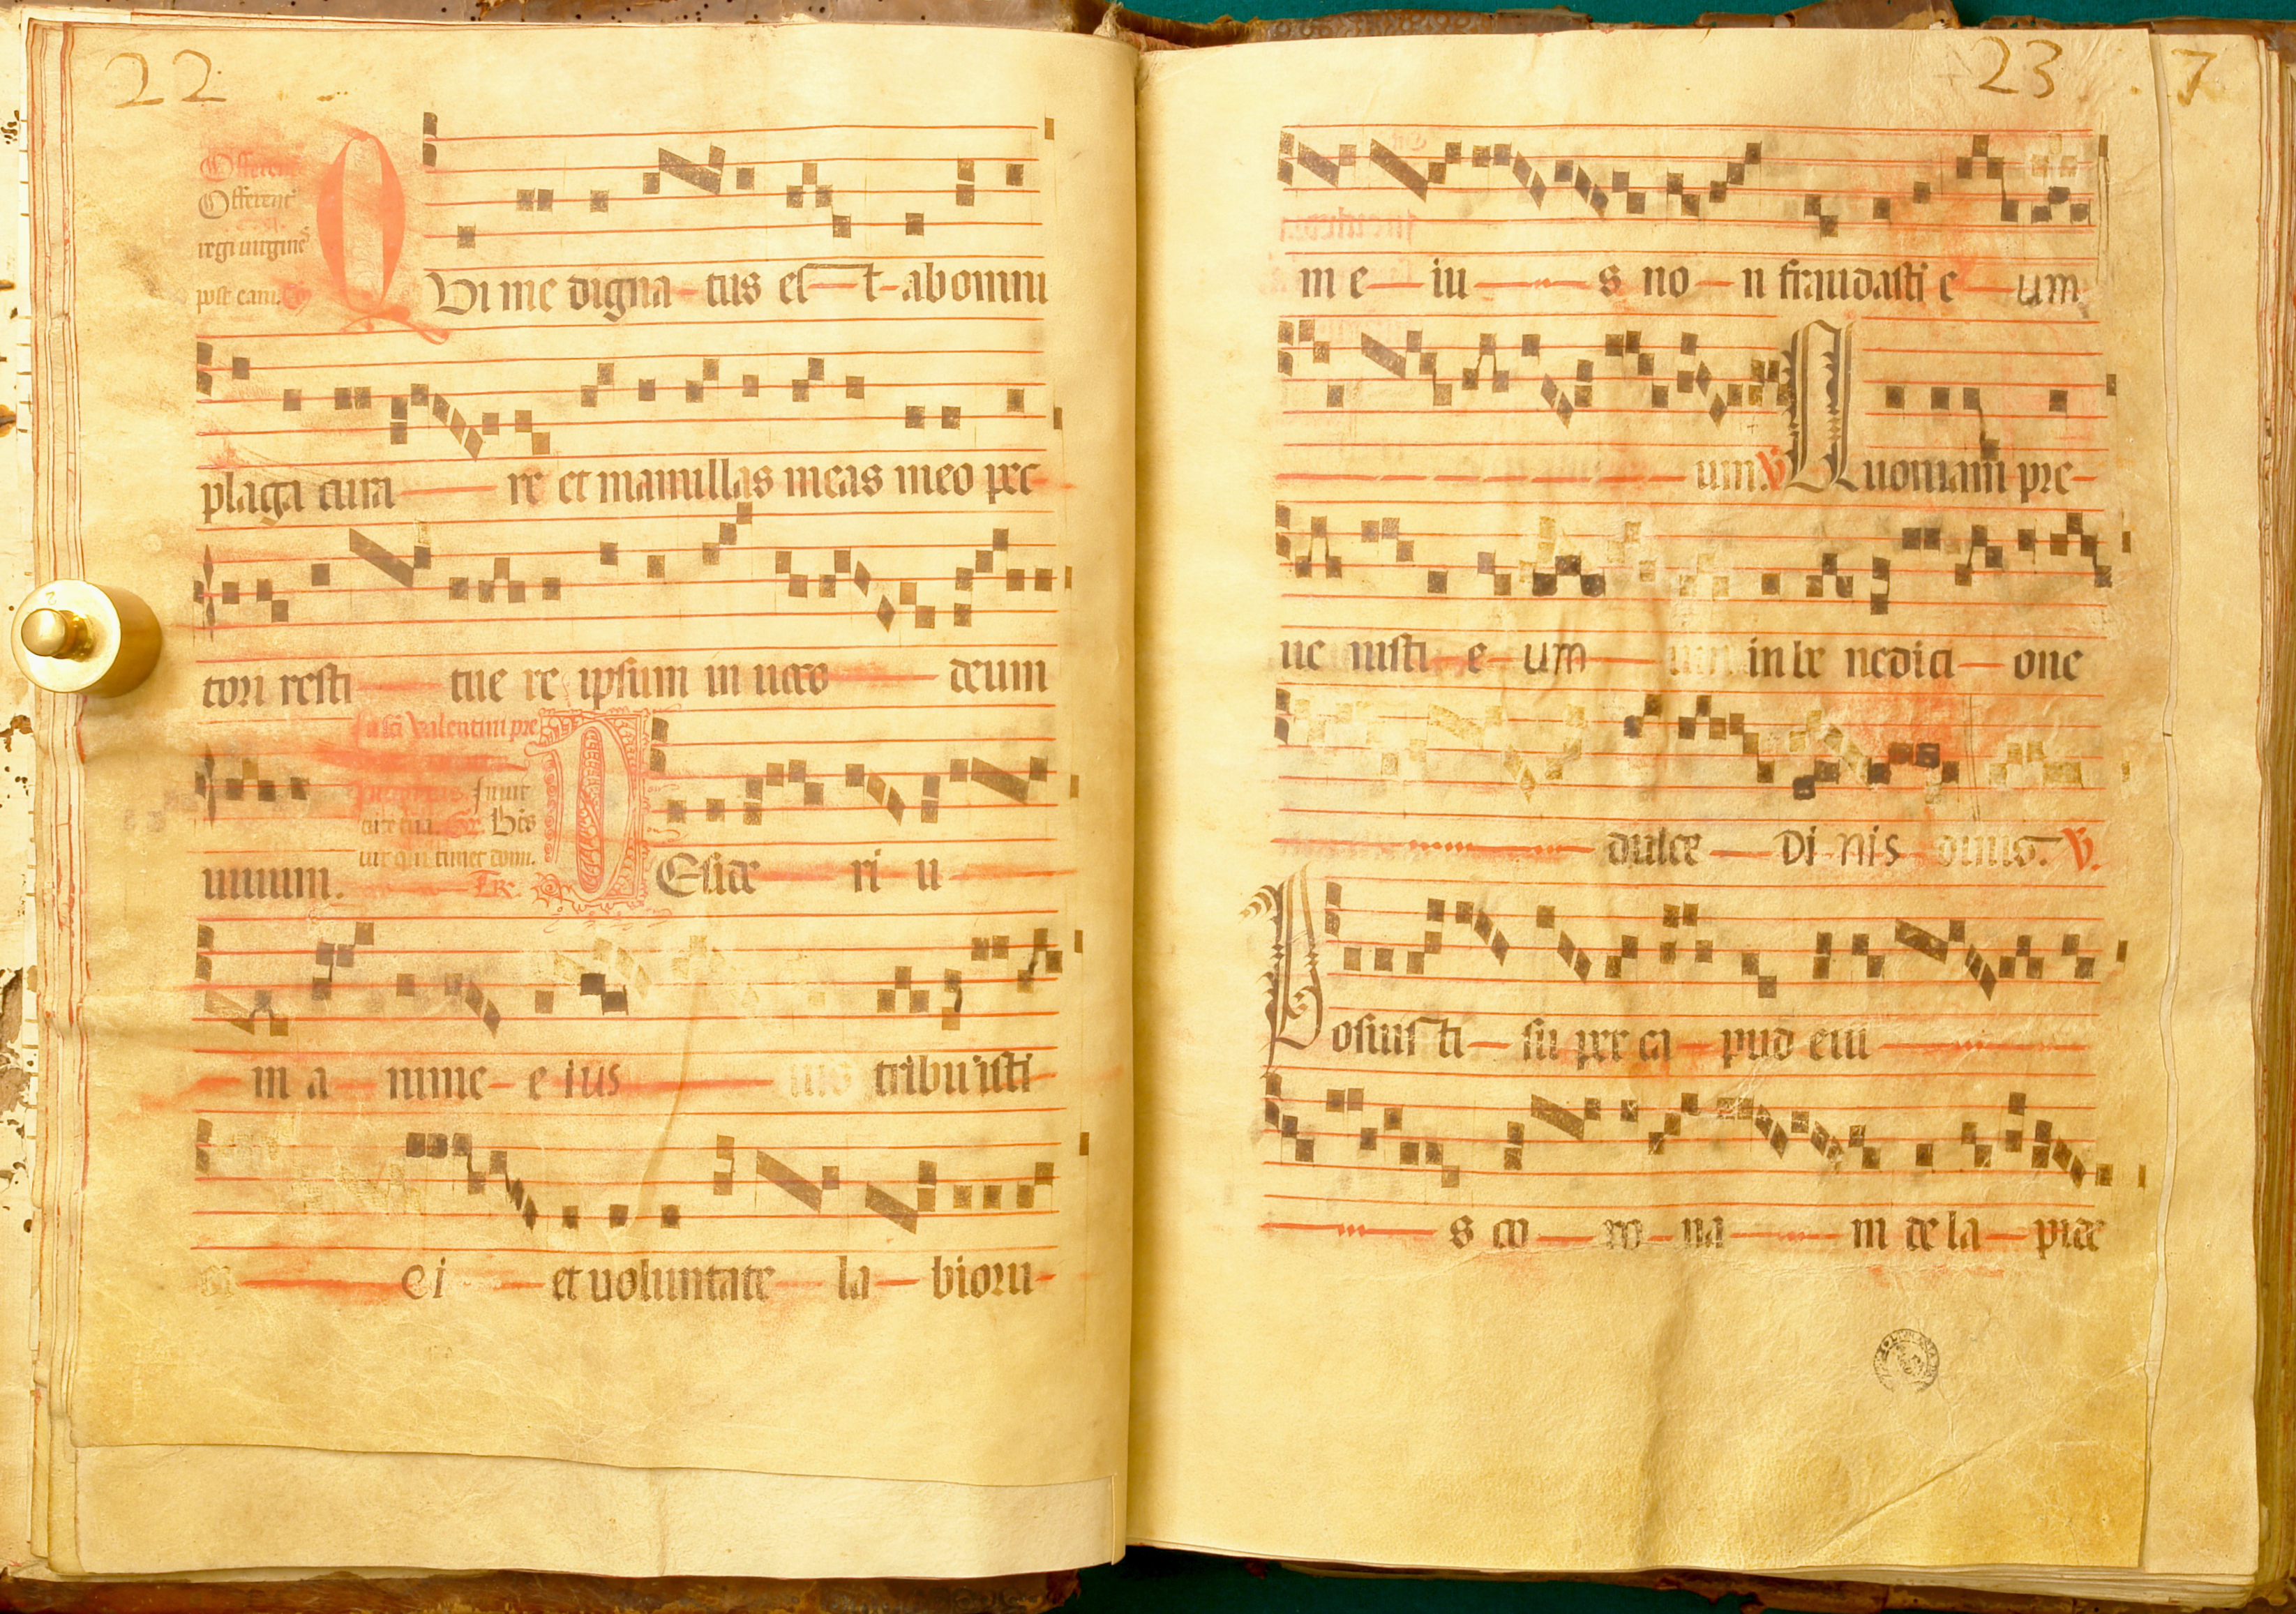 22
Offerent
Offerent
regi uirgines
post eam.
QVi me digna-tus es-t-ab omni
plaga cura-re et mamillas meas meo pec-
tori resti-tue re ipsum in uoco-deum
sci Valentini pre
uiuum.
uir qui timet dom.
Tr.
DEside-ri u-
m a-nime-e ius tribuisti-
ei et uoluntate la-bioru-
23
7
m e-iu-s no-n fraudasti e-um
um. V. Quoniam pre-
ue nisti e-um in be nedicti-one
dulce-Di nis V.
Posuisti-su per ca-pud eiu-
s co-ro-na-m de la-pide